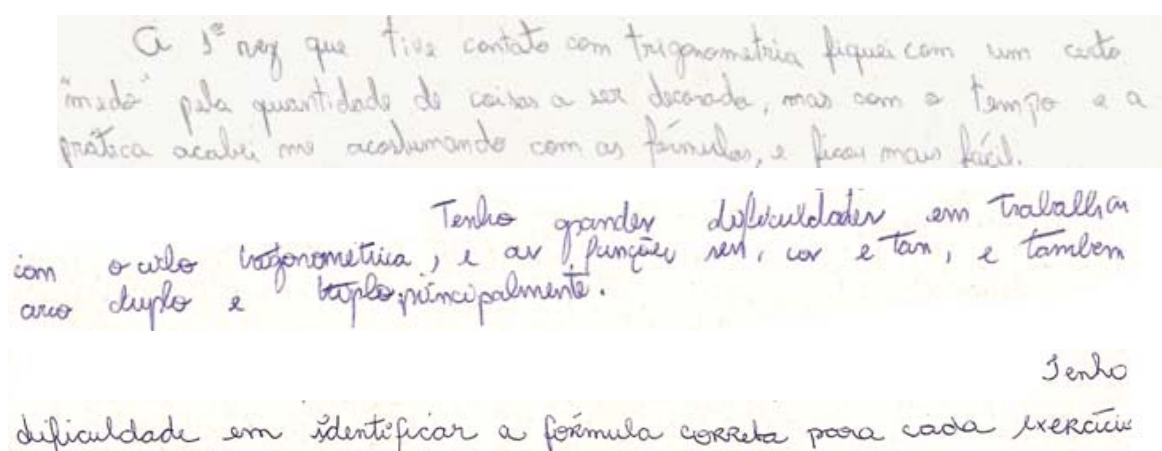 A 1ª vez que tive contato com trigonometria fiquei com um certo
"medo" pela quantidade de coisas a ser decorada, mas com o tempo e a
prática acabei me acostumando com as fórmulas, e ficou mais fácil.
Tenho grandes dificuldades em trabalhar
com o ciclo trigonométrica, e as funções sen, cos e tan, e também
arco duplo e triplo, principalmente.
Tenho
dificuldade em identificar a fórmula correta para cada exercício